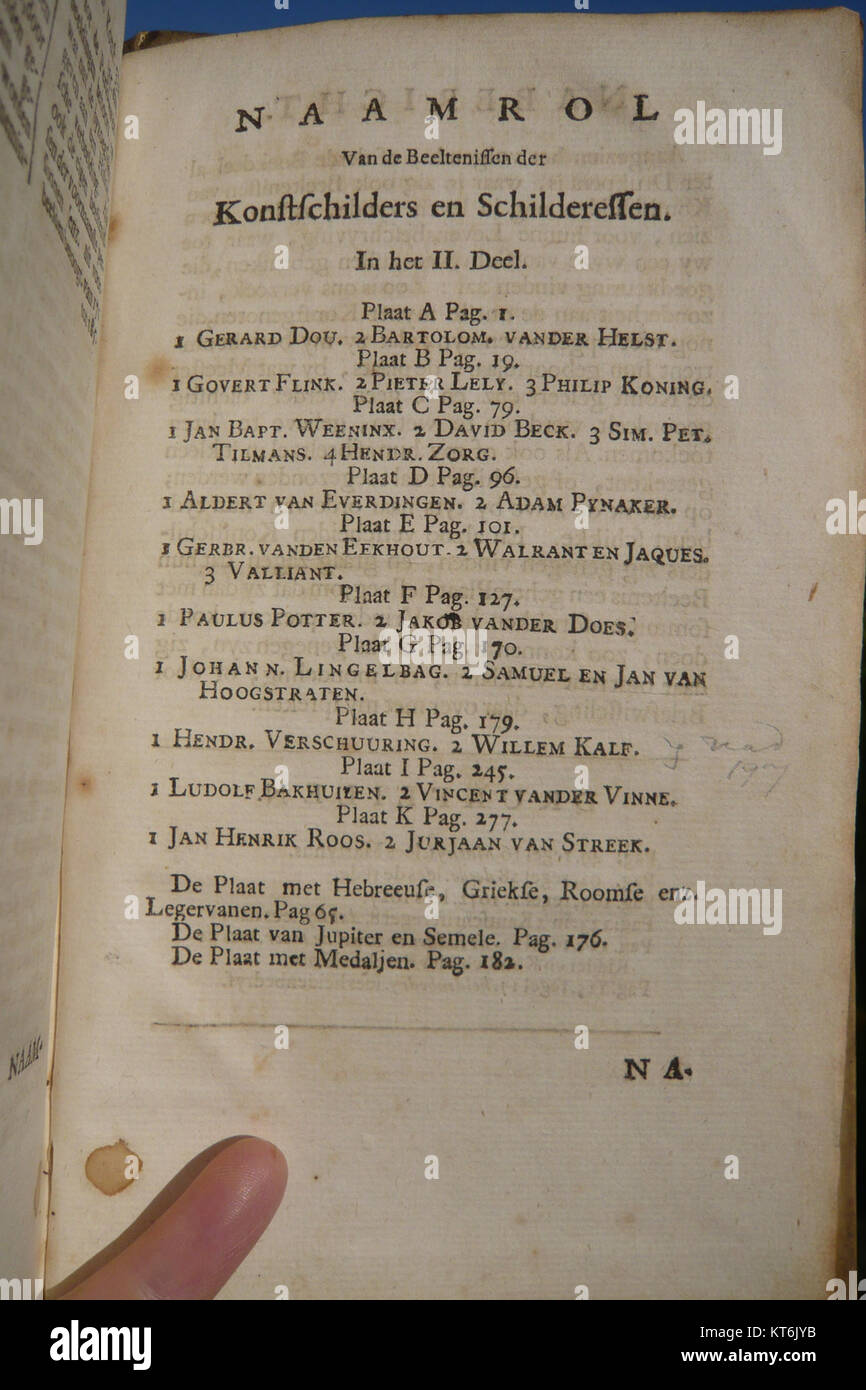 N A A M R O L
Van de Beelteniſſen der
Konſtſchilders en Schildereſſen.
In het II. Deel.
Plaat A Pag. 1.
1 GERARD DOU. 2 BARTOLOM. VANDER HELST.
Plaat B Pag. 19.
1 GOVERT FLINK. 2 PIETER LELY. 3 PHILIP KONING.
Plaat C Pag. 79.
1 JAN BAPT. WEENINX. 2 DAVID BECK. 3 SIM. PET.
TILMANS. 4 HENDR. ZORG.
Plaat D Pag. 96.
1 ALDERT VAN EVERDINGEN. 2 ADAM PYNAKER.
Plaat E Pag. 101.
1 GERBR. VANDEN EEKHOUT. 2 WALRANT EN JAQUES.
3 VALLIANT.
Plaat F Pag. 127.
1 PAULUS POTTER. 2 JAKOB VANDER DOES.
Plaat G Pag. 170.
1 JOHANN. LINGELBAG. 2 SAMUEL EN JAN VAN
HOOGSTRATEN.
Plaat H Pag. 179.
1 HENDR. VERSCHUURING. 2 WILLEM KALF.
Plaat I Pag. 245.
1 LUDOLF BAKHUIZEN. 2 VINCENT VANDER VINNE.
Plaat K Pag. 277.
1 JAN HENRIK ROOS. 2 JURJAAN VAN STREEK.
De Plaat met Hebreeuſe, Griekſe, Roomſe enz.
Legervanen. Pag 65.
De Plaat van Jupiter en Semele. Pag. 176.
De Plaat met Medaljen. Pag. 182.
N A.
NAAM.
alamy
alamy
Image ID: KT6JYB
www.alamy.com